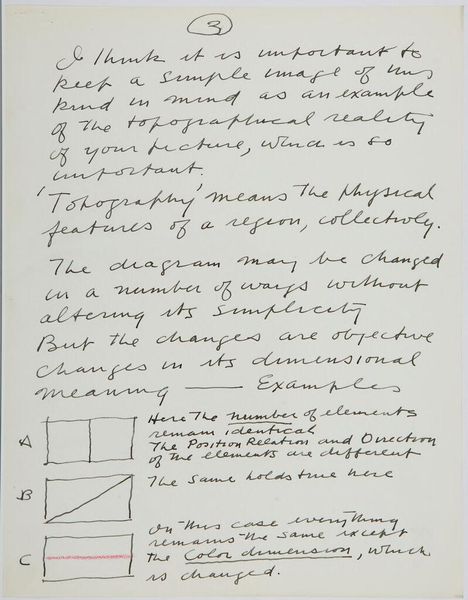 3
I think it is important to
keep a simple image of this
kind in mind as an example
of the topographical reality
of your picture, which is so
important.
'Topography' means the physical
features of a region, collectively.
The diagram may be changed
in a number of ways without
altering its simplicity
But the changes are objective
changes in its dimensional
meaning — Examples
A
Here the number of elements
remain identical
The Position Relation and Direction
of the elements are different
B
The same holds true here
C
In this case everything
remains the same except
the Color dimension, which
is changed.